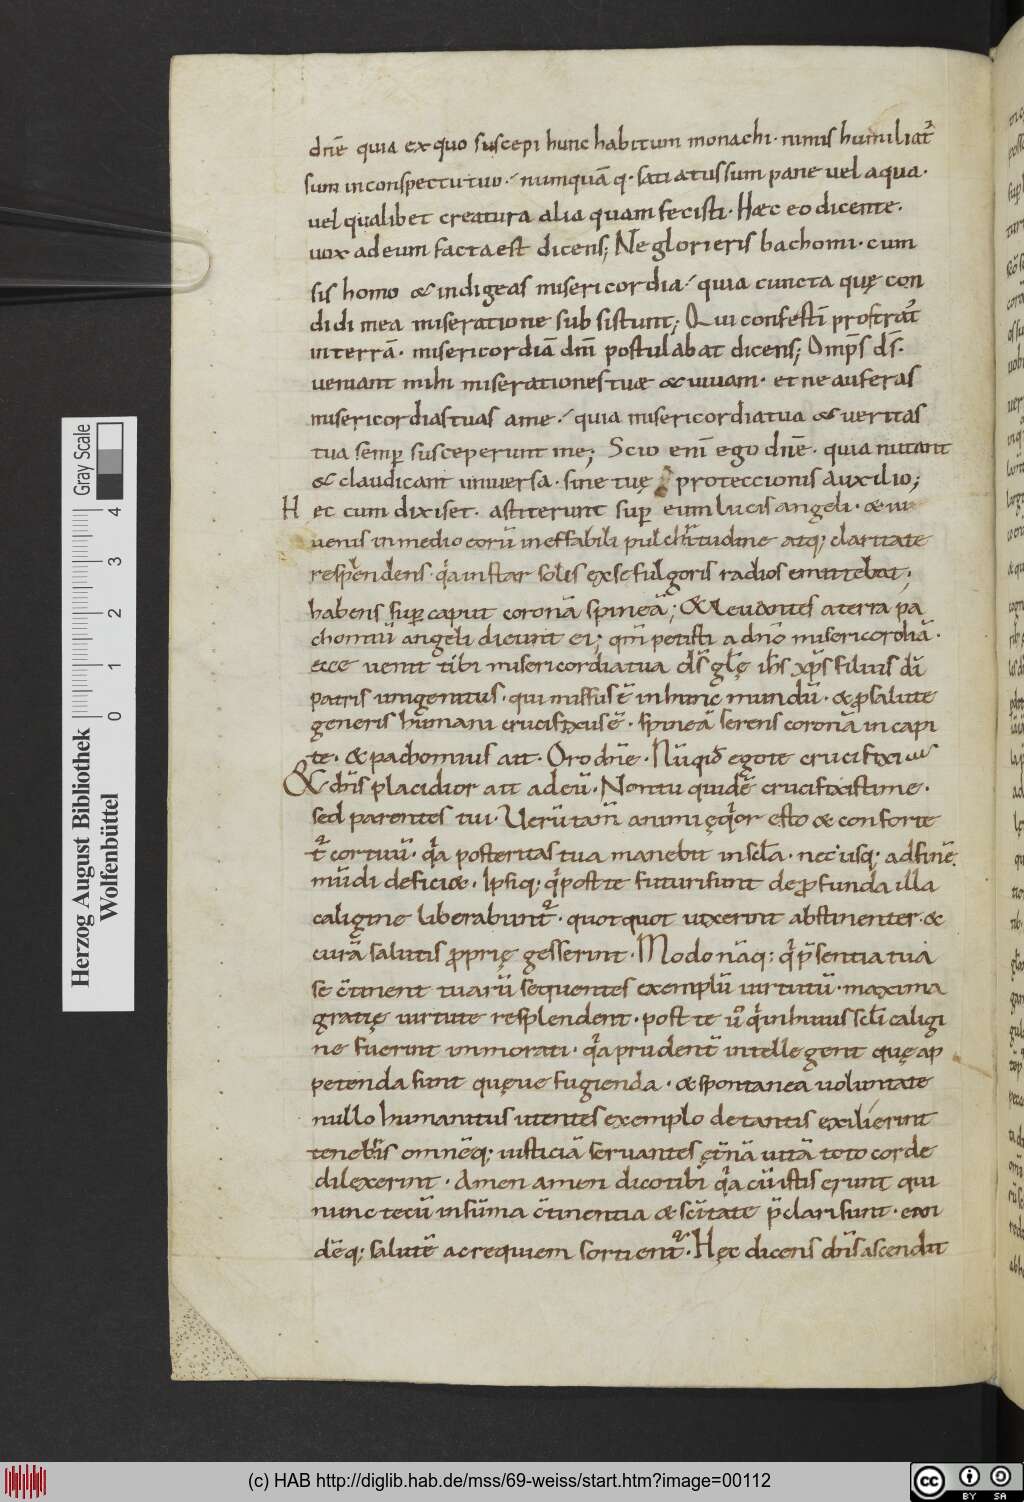 dn̄e quia ex quo suscepi hunc habitum monachi· nimis humiliat᷑
sum inconspectu tuo·/ numquā q· satiatus sum pane vel aqua·
vel qualibet creatura alia quam fecisti· Haec eo dicente·
uox ad eum facta est dicens; Ne glorieris bachomi· cum
sis homo & indigeas misericordia·/ quia cuncta quę con
didi mea miseratione subsistunt; Qui confestī prostrat᷑
in terrā· misericordiā dn̄i postulabat dicens; Omp̄s d̄s·
ueniant mihi miserationes tuae & uiuam· et ne auferas
misericordias tuas a me·/ quia misericordia tua & veritas
tua semꝑ susceperunt me; Scio enī ego dn̄e· quia nutant
& claudicant universa· sine tuę proteccionis auxilio;
H ec cum dixiset· astiterunt suꝑ eum lucis angeli· & iu
uenis in medio eorū ineffabili pulchͥtudine atq; claritate
resplendens· qͥa instar solis ex se fulgoris radios emittebat;
habens suꝑ caput coronā spineā; & leuantes a terra pa
chomiū angeli dicunt ei; qm̄ petisti a dn̄o misericordiā·
ecce uenit tibi misericordia tua d̄s gl̄ę ih̄s xp̄s filius dī
patris unigenitus· qui missus ē in hunc mundū· & ꝓ salute
generis humani crucifixus ē· spineā ferens coronā in capi
te· & pachomius ait· Oro dn̄e· Nūqid ego te crucifixi
& dn̄s placidior ait ad eū· Non tu quidē crucifixisti me·
sed parentes tui· Uerūtam̄ animięqͥor esto & conforte
t᷑ cor tuū· qͥa posteritas tua manebit in sc̄la· nec usq; ad finē
mūdi deficiet· Ipsiq; qͥ post te futuri sunt de ꝓfunda illa
caligine liberabunt᷑· quotquot uixerint abstinenter· &
curā salutis ꝓprię gesserint· Modo nāq; qͥ p̄sentia tua
se c̄tinent tuarū sequentes exemplū uirtutū· maxima
gratię uirtute resplendent· post te u᷑o qͥ in huius sc̄li caligi
ne fuerint inmorati· qͥa prudent᷑ intellegent quę ap
petenda sunt quęue fugienda· & spontanea uoluntate
nullo humanitus utentes exemplo de tantis exilierint
tenebͥs omnēq; iusticiā servantes ęt̄nā uitā toto corde
dilexerint· Amen amen dico tibi qͥa cū istis erunt qui
nunc tecū in sūma c̄tinentia & sc̄itate p̄clari sunt·
dēq; salutē ac requiem sortient᷑· Hęc dicens dn̄s ascendit
Herzog August Bibliothek
Wolfenbüttel
Gray Scale
0 1 2 3 4
(c) HAB http://diglib.hab.de/mss/69-weiss/start.htm?image=00112
cc BY SA